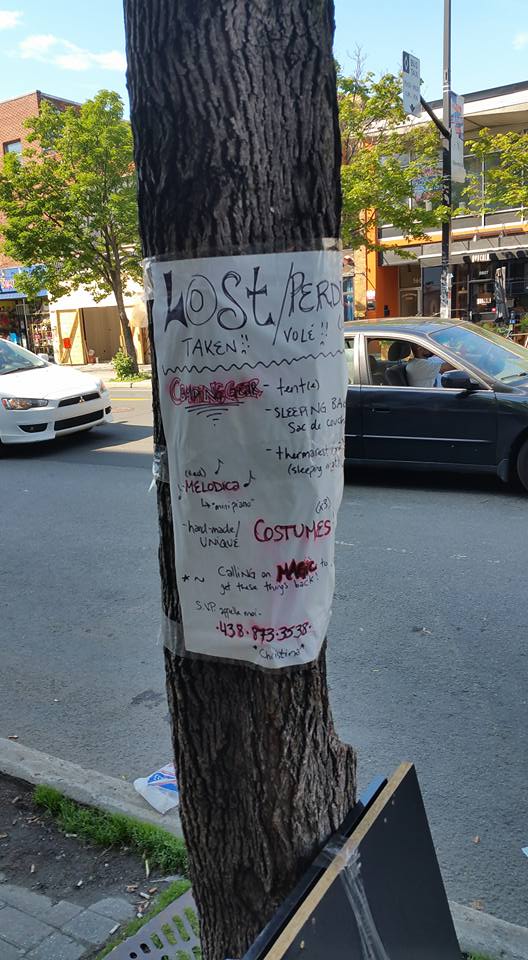 LOSt/PERD
TAKEN!! VOLÉ!!
CAMPING GEAR - tent(e)
- SLEEPING BA
Sac de couch
- thermarest
(sleeping mat
(red)
MELODICA
↳ "mini piano"
(x3)
- hand-made/ COSTUMES
UNIQUE
* ~ Calling on MAGIC to
get these things back!
S.V.P. appelle moi -
·438·873·3538·
"Christina"